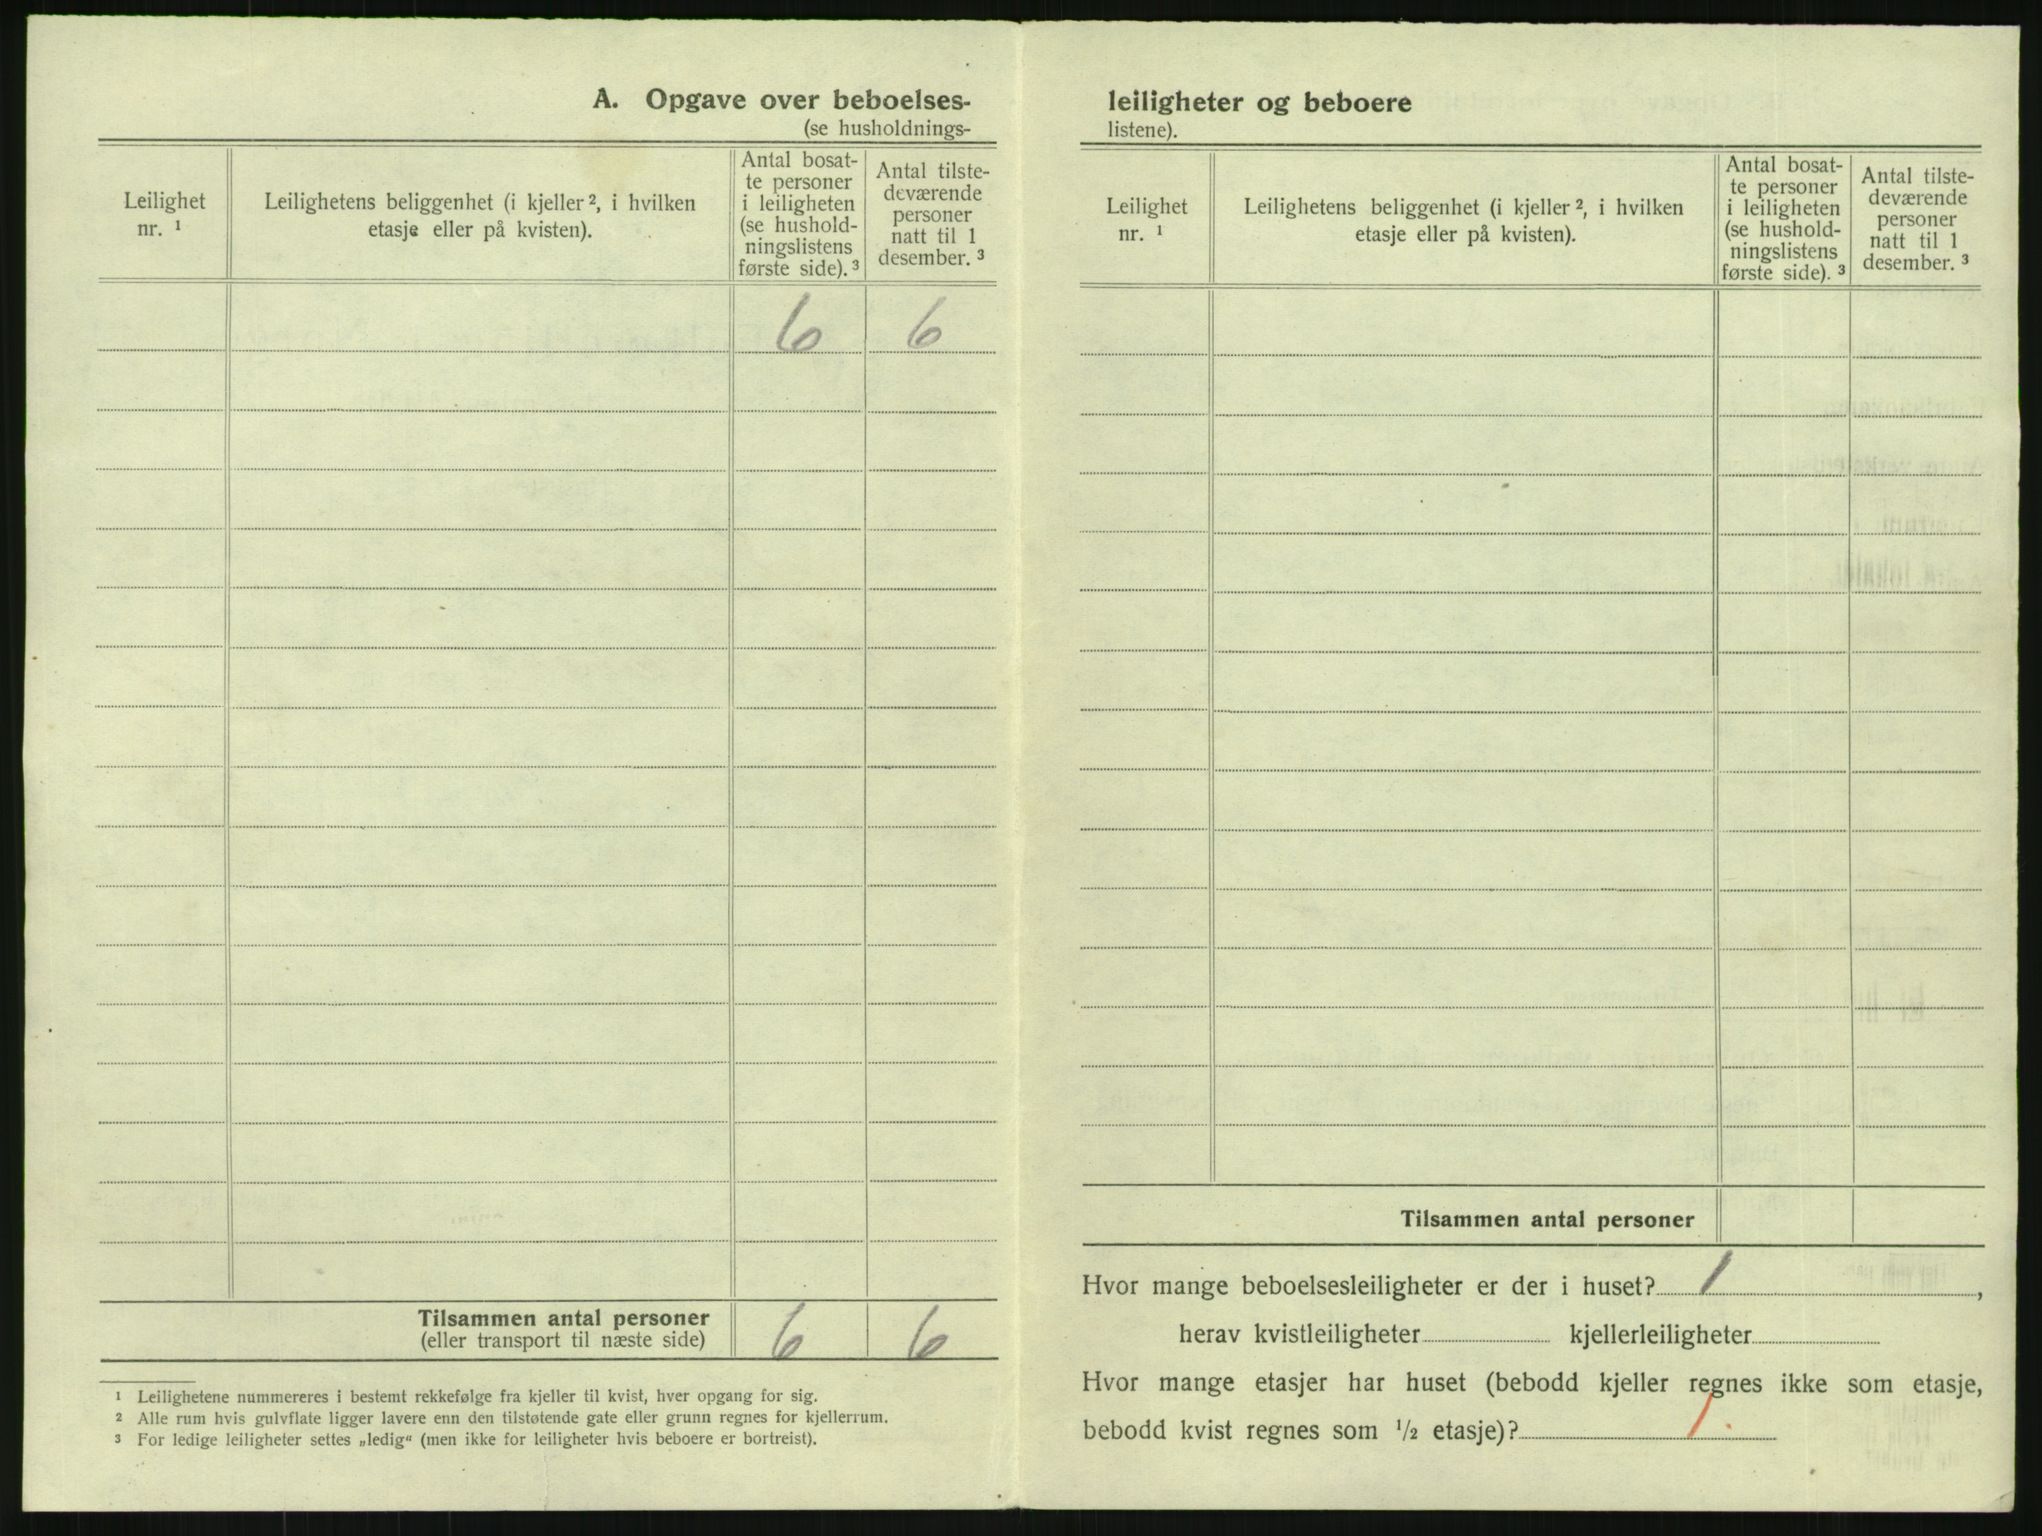 A. Opgave over beboelses-
(se husholdnings-
Leilighet
nr. 1
Leilighetens beliggenhet (i kjeller 2, i hvilken
etasje eller på kvisten).
Antal bosat-
te personer
i leiligheten
(se hushold-
ningslistens
første side). 3
Antal tilste-
deværende
personer
natt til 1
desember. 3
6 6
Tilsammen antal personer
(eller transport til næste side)
6 6
1 Leilighetene nummereres i bestemt rekkefølge fra kjeller til kvist, hver opgang for sig.
2 Alle rum hvis gulvflate ligger lavere enn den tilstøtende gate eller grunn regnes for kjellerrum.
3 For ledige leiligheter settes „ledig“ (men ikke for leiligheter hvis beboere er bortreist).
leiligheter og beboere
listene).
Leilighet
nr. 1
Leilighetens beliggenhet (i kjeller 2, i hvilken
etasje eller på kvisten).
Antal bosat-
te personer
i leiligheten
(se hushold-
ningslistens
første side). 3
Antal tilste-
deværende
personer
natt til 1
desember. 3
Tilsammen antal personer
Hvor mange beboelsesleiligheter er der i huset? 1,
herav kvistleiligheter kjellerleiligheter
Hvor mange etasjer har huset (bebodd kjeller regnes ikke som etasje,
bebodd kvist regnes som 1/2 etasje)? 1.